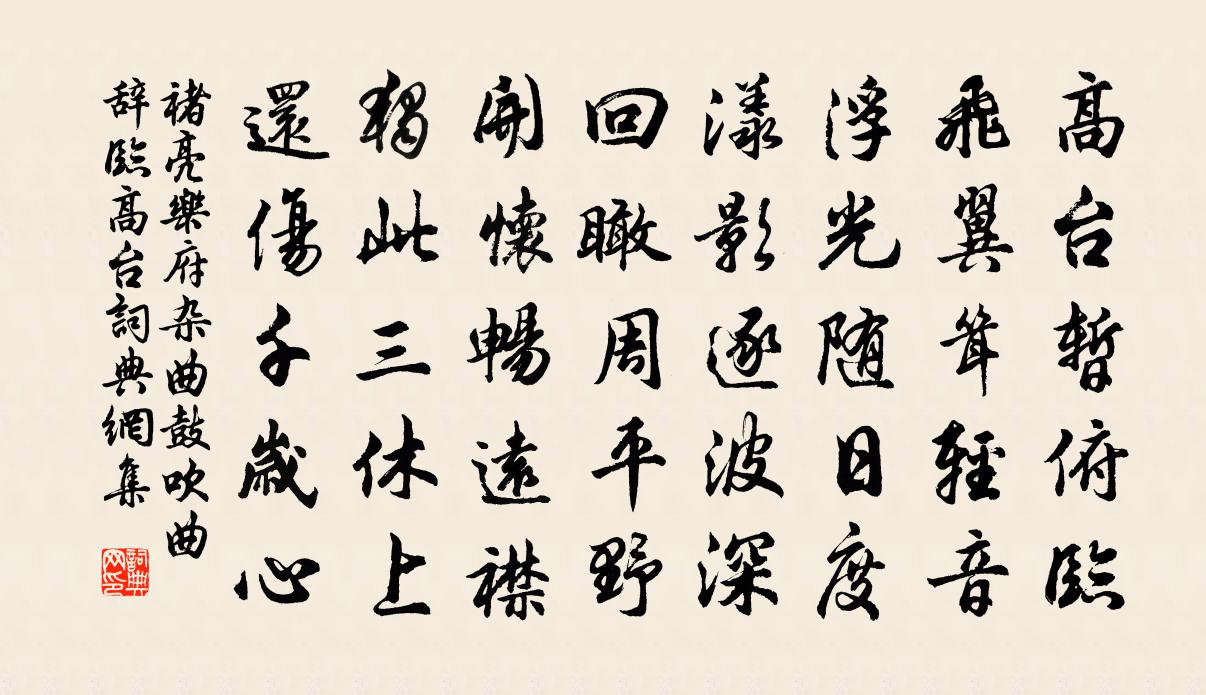 高台暫俯臨
飛翼耸輕音
浮光随日度
漾影逐波深
回瞰周平野
開懷暢遠襟
獨此三休上
還傷千歲心
褚亮樂府杂曲鼓吹曲
辞臨高台詞典網集
詞典网印